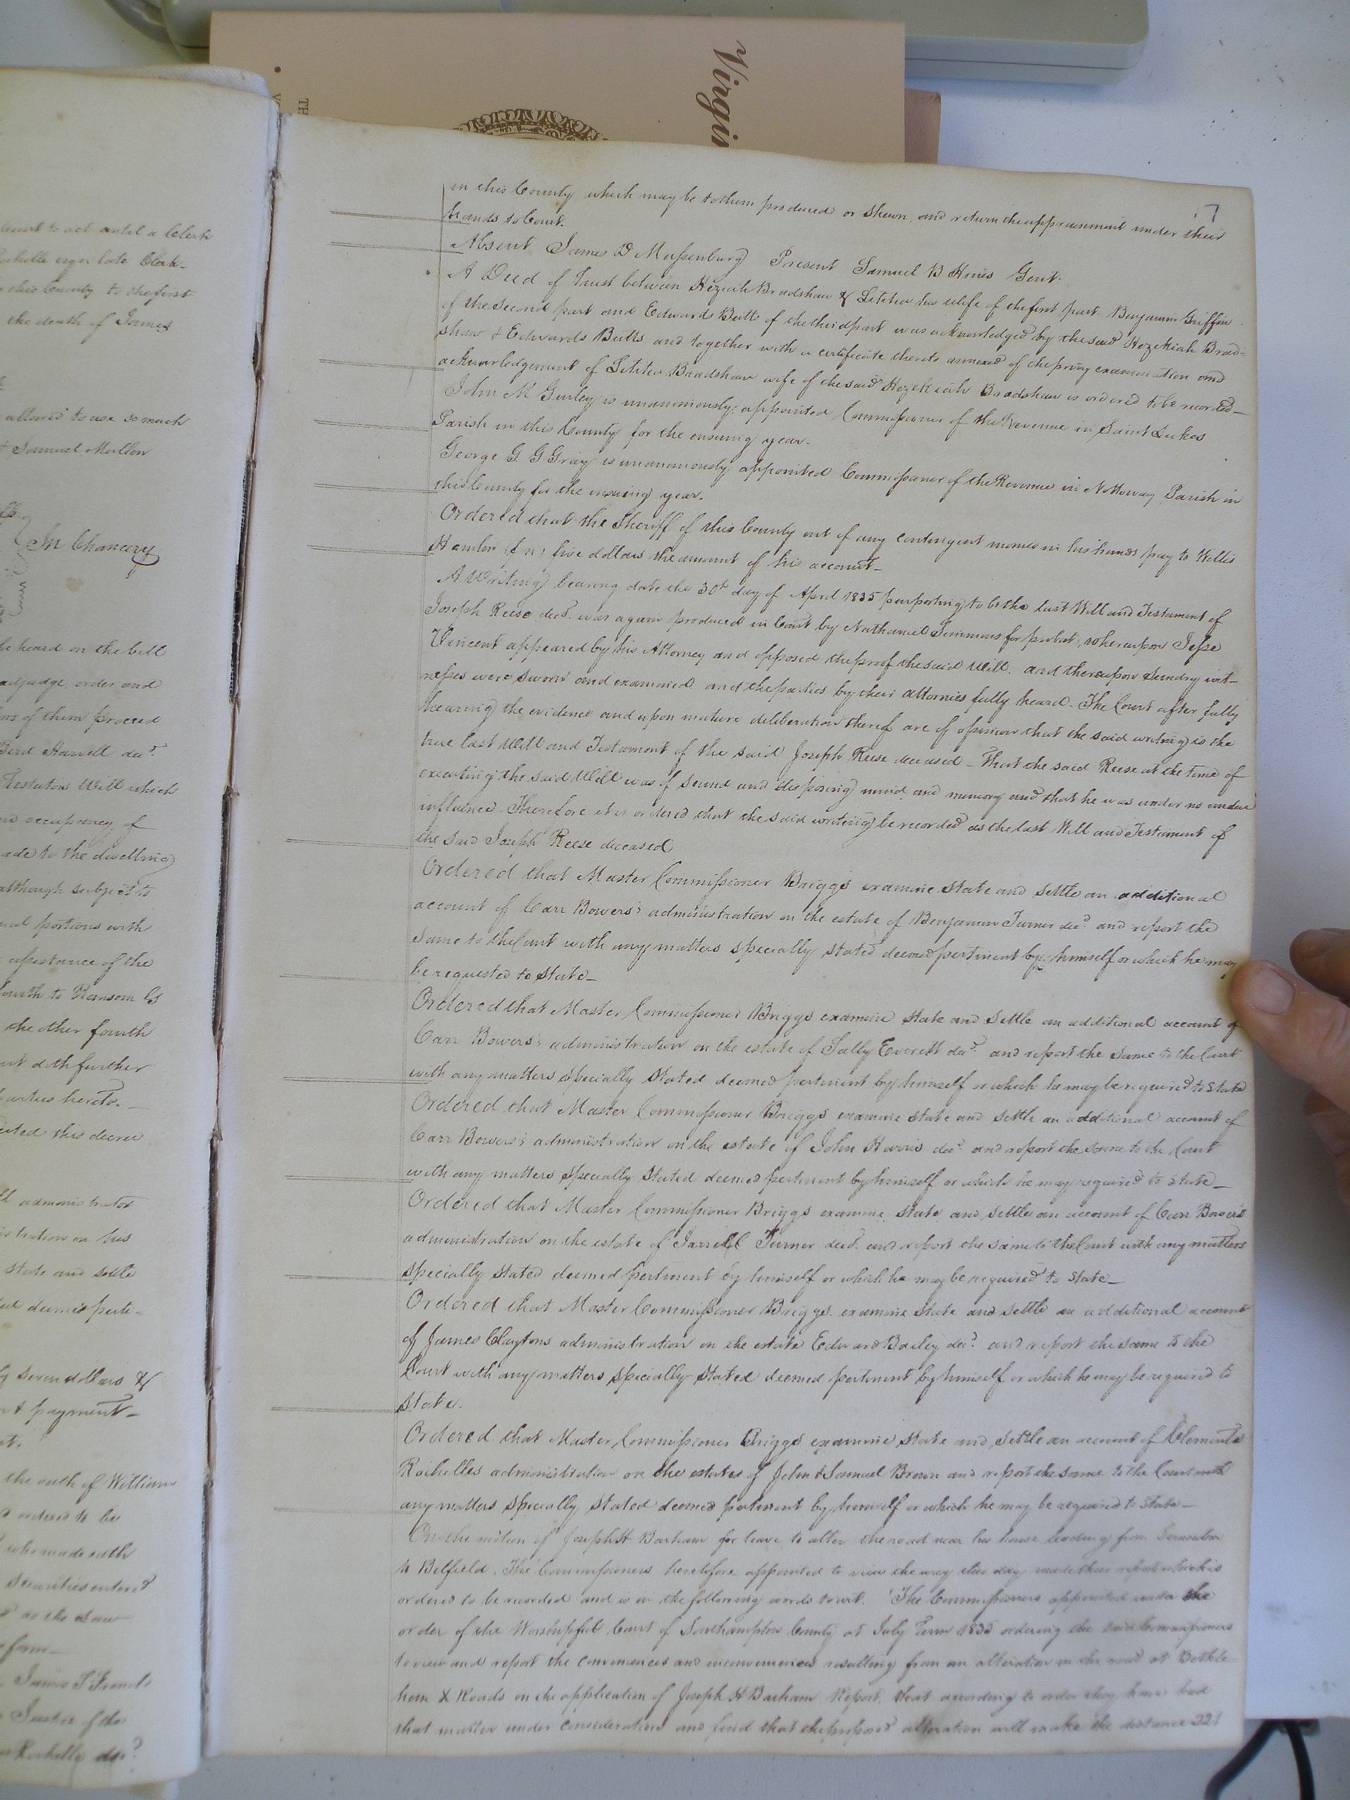 Virgin
TH
V
Court to act until a Clerk
Rochelle esqr late Clerk
this County to the first
the death of James
allowed to use so much
Samuel Mutton
In Chancery
be heard on the bill
adjudge order and
of them proceed
Bird Harvell decd
Testators Will which
occupancy of
to the dwelling
although subject to
portions with
assistance of the
fourth to Ransom
the other fourth
further
parties hereto.
this decree
administrator
administration on his
state and settle
deemed perti-
seven dollars &
payment
the oath of William
ordered to be
who made oath
Securities entered
as the Law
form
James S French
Justice of the
Rochelle decd
17
in this County which may be to them produced or shewn, and return the appraisement under their
hands to Court.
Absent James D Massenburg Present Samuel B Hines Gent.
A Deed of Trust between Hezekiah Bradshaw & Letitia his wife of the first part Benjamin Griffin
of the second part and Edward Butts of the third part was acknowledged by the said Hezekiah Brad-
shaw & Edwards Butts and together with a certificate thereto annexed of the privy examination and
acknowledgement of Letitia Bradshaw wife of the said Hezekiah Bradshaw is ordered to be recorded
John M Gurley is unanimously appointed Commissioner of the Revenue in Saint Lukes
Parish in this County for the ensuing year.
George G G Gray is unanimously appointed Commissioner of the Revenue in Nottoway Parish in
this County for the ensuing year.
Ordered that the Sheriff of this County out of any contingent monies in his hands pay to Willis
five dollars the amount of his account
A Writing bearing date the 30th day of April 1835 purporting to be the last Will and Testament of
Joseph Reese decd was again produced in Court by Nathaniel Simmons for probat, whereupon Jesse
Vincent appeared by his Attorney and opposed the proof the said Will. and thereupon sundry wit-
nesses were sworn and examined and the parties by their attornies fully heard. The Court after fully
hearing the evidence and upon mature deliberation thereof are of opinion that the said writing is the
true last Will and Testament of the said Joseph Reese deceased - That the said Reese at the time of
executing the said Will was of sound and disposing mind, and memory and that he was under no undue
influence. Therefore it is ordered that the said writing be recorded as the last Will and Testament of
the said Joseph Reese deceased
Ordered that Master Commissioner Briggs examine state and settle an additional
account of Carr Bowers's administration on the estate of Benjamin Turner decd and report the
same to the Court with any matters specially stated deemed pertinent by himself or which he may
be requested to state
Ordered that Master Commissioner Briggs examine state and settle an additional account of
Carr Bowers's administration on the estate of Sally Everett decd and report the same to the Court
with any matters specially stated deemed pertinent by himself or which he may be required to state
Ordered that Master Commissioner Briggs examine state and settle an additional account of
Carr Bowers's administration on the estate of John Harris decd and report the same to the Court
with any matters specially stated deemed pertinent by himself or which he may required to state
Ordered that Master Commissioner Briggs examine state and settle an account of Carr Bowers's
administration on the estate of Jarrell Turner decd and report the same to the Court with any matters
specially stated deemed pertinent by himself or which he may be required to state
Ordered that Master Commissioner Briggs examine state and settle an additional account
of James Claytons administration on the estate Edward Bailey decd and report the same to the
Court with any matters specially stated deemed pertinent by himself or which he may be required to
state.
Ordered that Master Commissioner Briggs examine state and settle an account of Clements
Rochelles administration on the estates of John & Samuel Brown and report the same to the Court with
any matters specially stated deemed pertinent by himself or which he may be required to state
On the motion of Joseph H Barham for leave to alter the road near his house leading from Jerusalem
to Belfield. The Commissioners heretofore appointed to view the way this day made their report which is
ordered to be recorded and is in the following words to wit. "The Commissioners appointed under the
order of the Worshipful Court of Southampton County at July Term 1835 ordering the said Commissioners
to view and report the conveniences and inconveniences resulting from an alteration in the road at Bethle
hem X Roads on the application of Joseph H Barham Report, that according to order they have had
that matter under consideration and find that the proposed alteration will make the distance 221